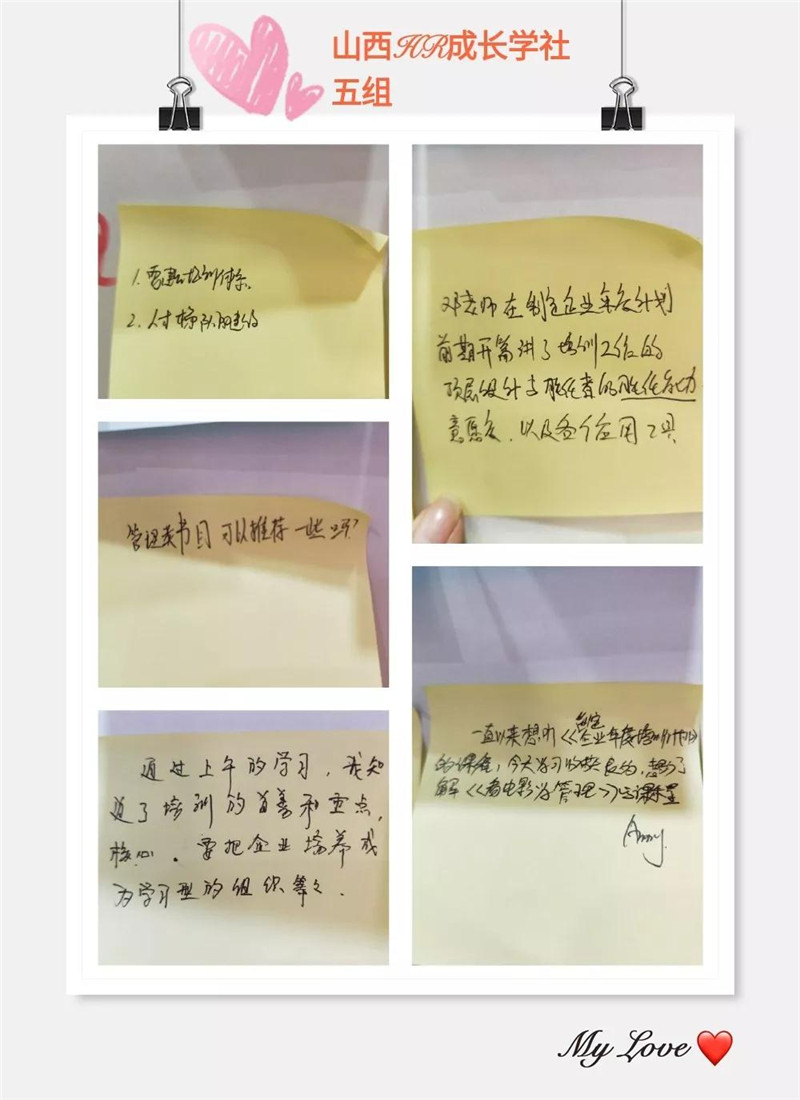 山西HR成长学社
五组
1. 要建立培训体系.
2. 人才梯队的建设
邓老师在制造企业年度计划
前期开篇讲了培训工作的
顶层设计与胜任者的胜任能力
意愿度、以及各个应用工具
管理类书目可以推荐一些吗?
通过上午的学习,我知
道了培训的首善和重点,
核心。要把企业培养成
为学习型的组织等等.
制定
一直以来想听《企业年度培训计划》
的课程,今天学习收获良多,想了
解《看电影学管理》的课
Amy
My Love ❤